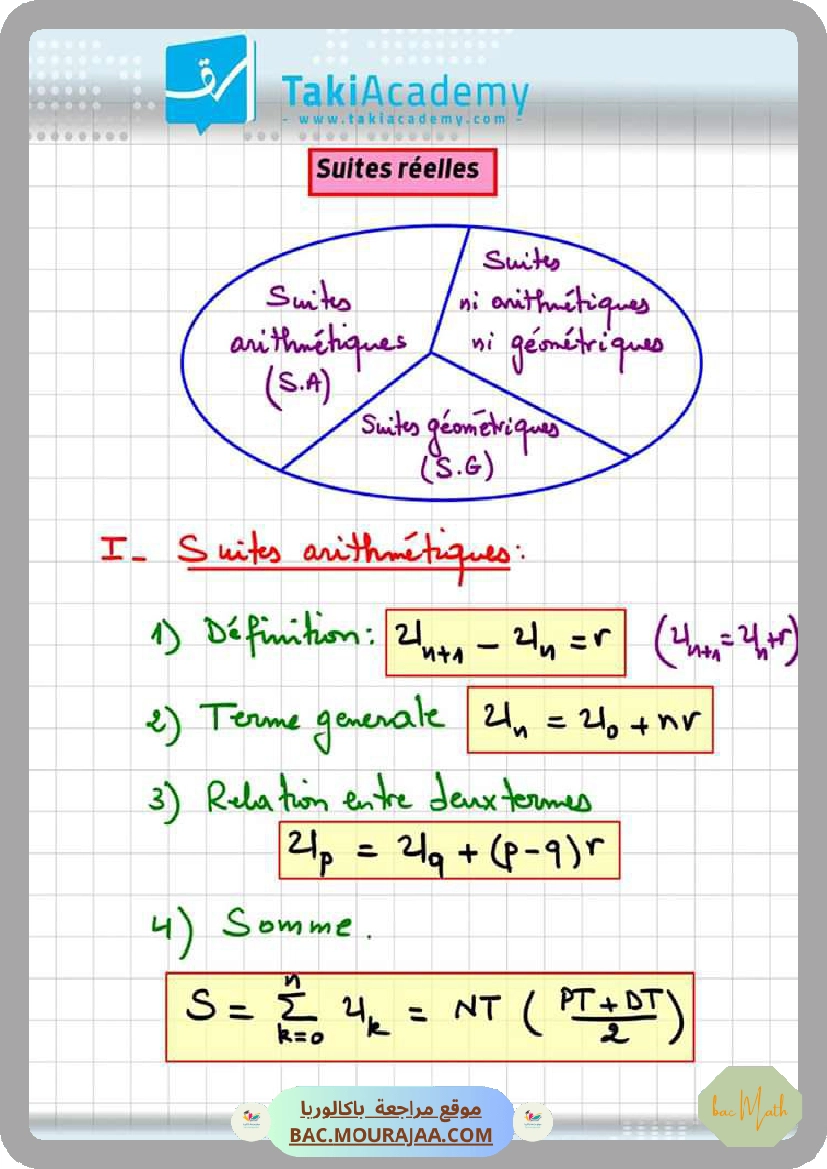 TakiAcademy
- www.takiacademy.com -
Suites réelles
Suites
arithmétiques
(S.A)
Suites
ni arithmétiques
ni géométriques
Suites géométriques
(S.G)
I- Suites arithmétiques:
1) Définition: U_{n+1} - U_n = r (U_{n+1} = U_n + r)
2) Terme generale U_n = U_0 + nr
3) Relation entre deux termes
U_p = U_q + (p-q)r
4) Somme.
S = \sum_{k=0}^{n} U_k = NT ( \frac{PT + DT}{2} )
موقع مراجعة باكالوريا
BAC.MOURAJAA.COM
bac Math